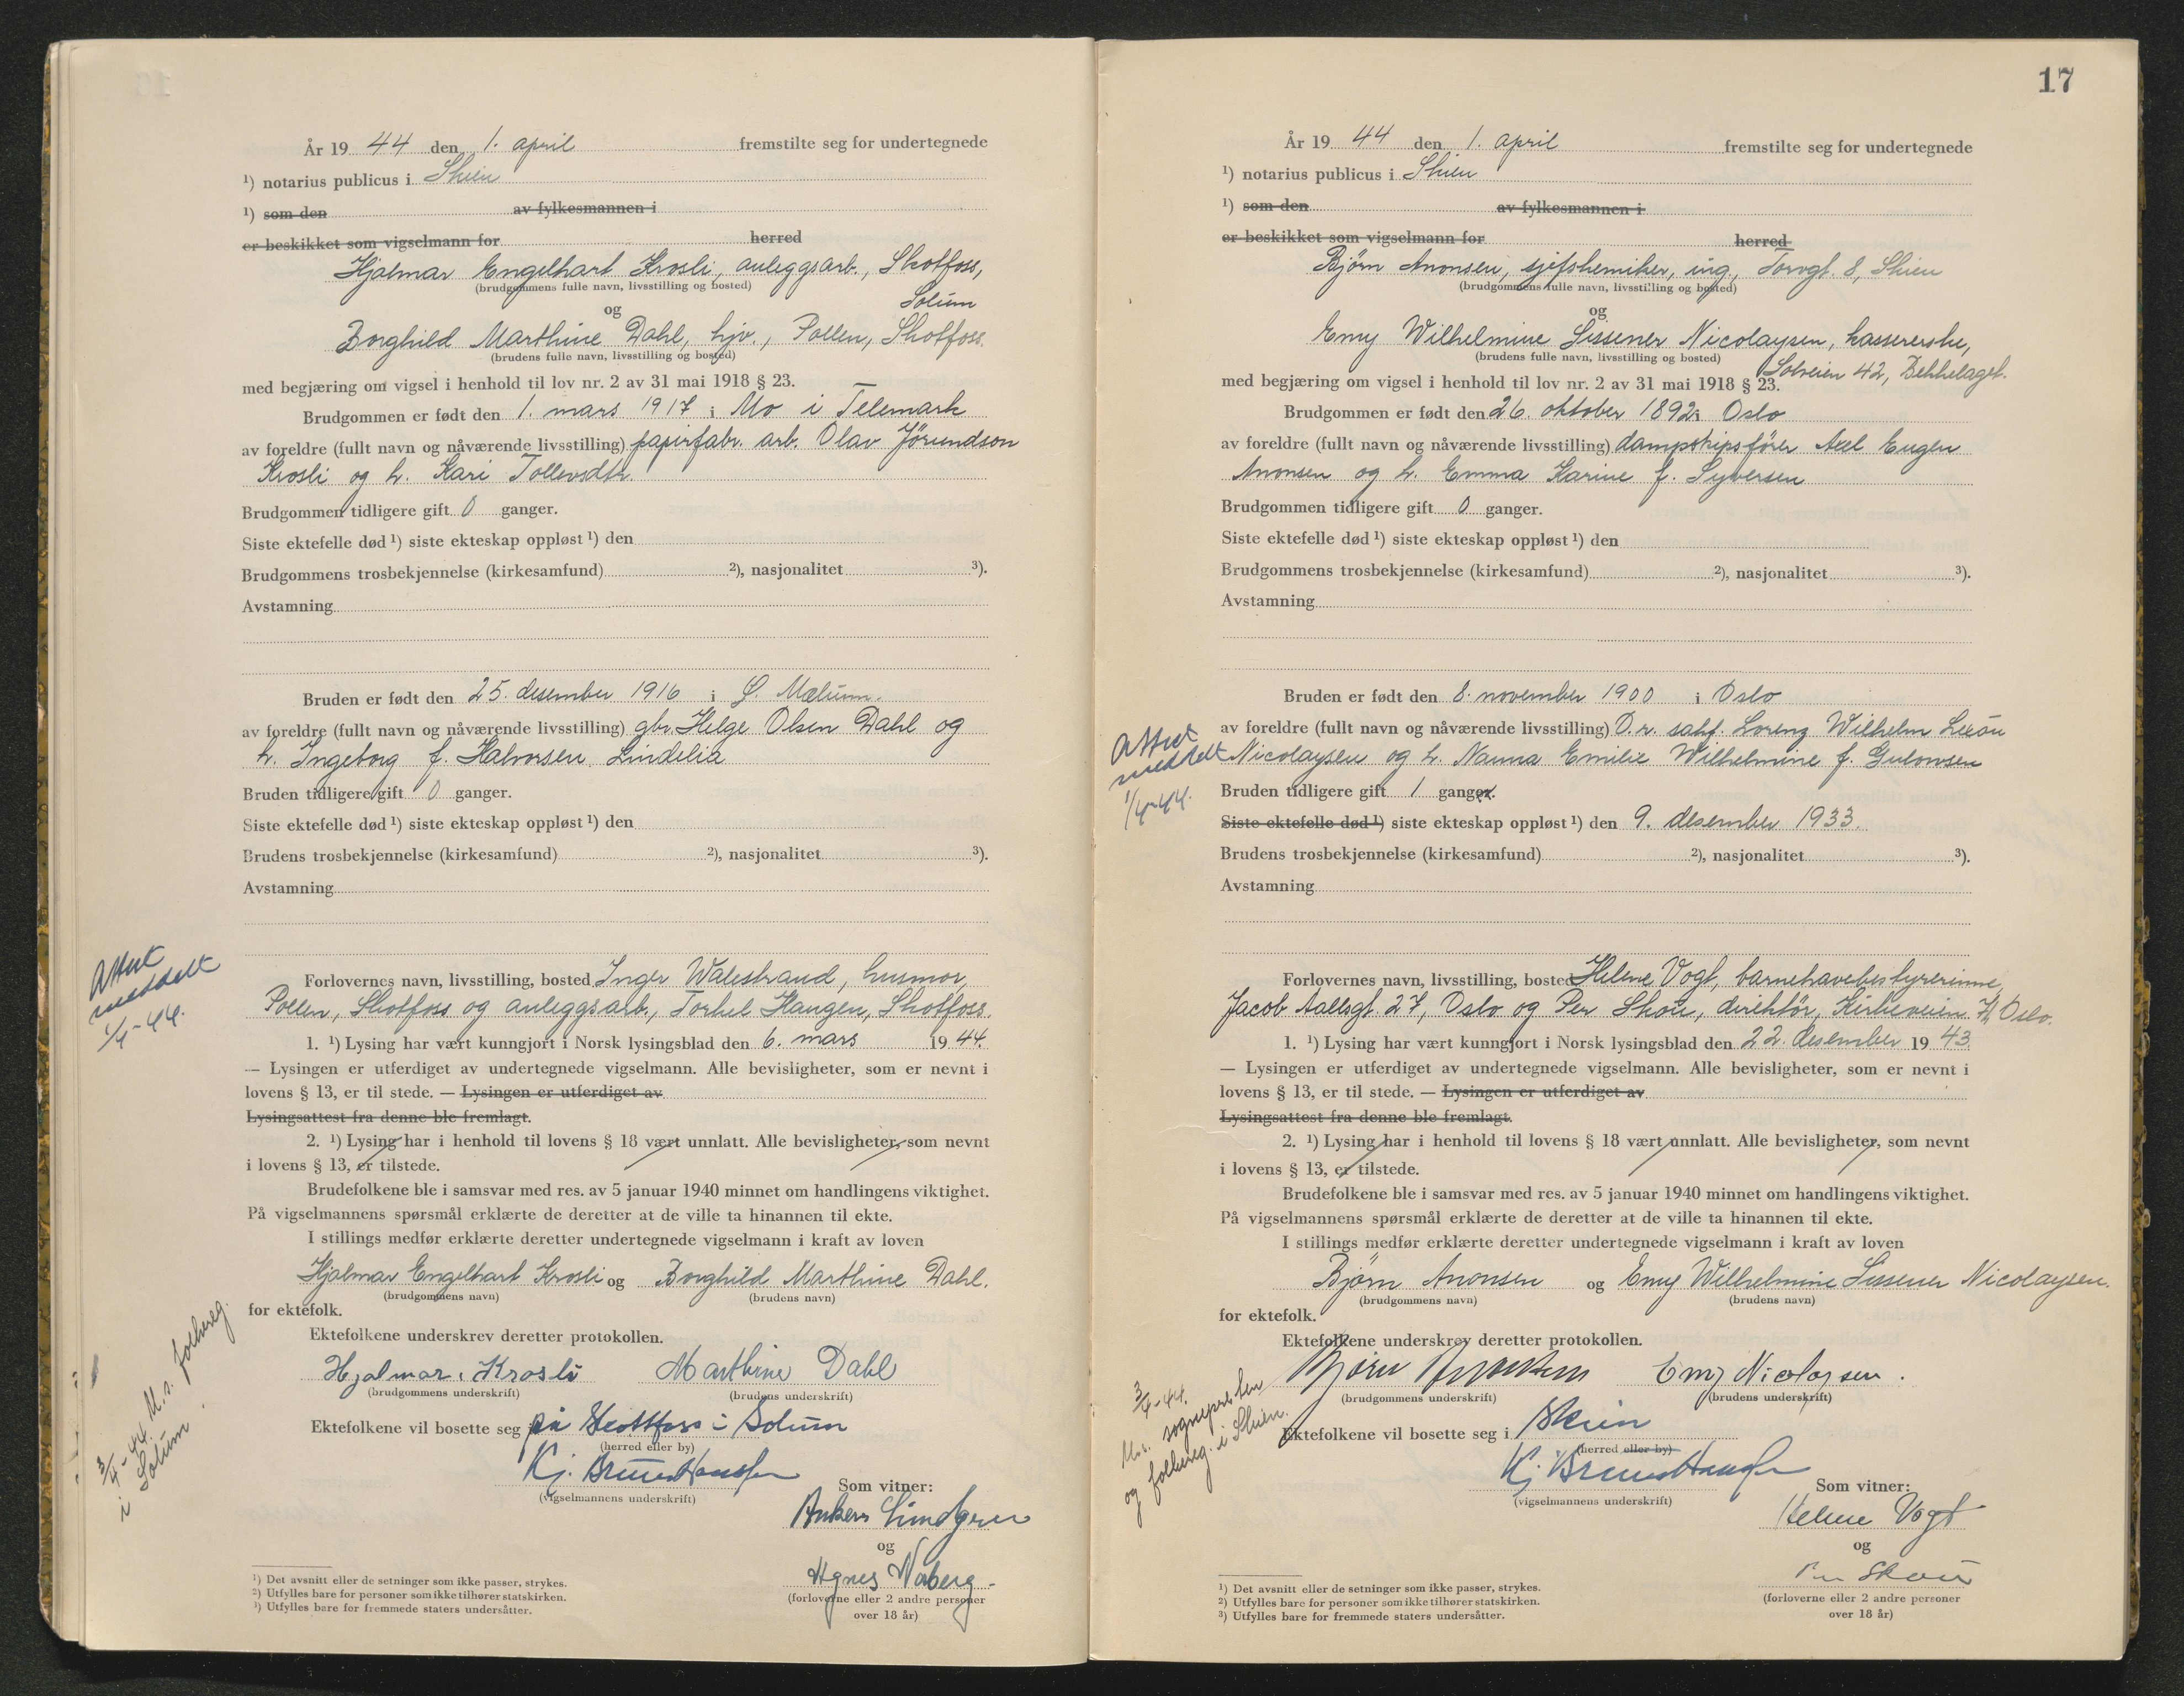 År 19 44 den 1. april fremstilte seg for undertegnede
¹) notarius publicus i Skien
¹) som den av fylkesmannen i
er beskikket som vigselmann for herred
Hjalmar Engelhart Krosli, anleggsarb., Skotfoss,
(brudgommens fulle navn, livsstilling og bosted)
Solum
og
Borghild Marthine Dahl, hjv., Pollen, Skotfoss.
(brudens fulle navn, livsstilling og bosted)
med begjæring om vigsel i henhold til lov nr. 2 av 31 mai 1918 § 23.
Brudgommen er født den 1. mars 1917 i Mo i Telemark
av foreldre (fullt navn og nåværende livsstilling) papirfabr. arb. Olav Jörundson
Krosli og h. Kari Tollevsdtr.
Brudgommen tidligere gift 0 ganger.
Siste ektefelle død ¹) siste ekteskap oppløst ¹) den
Brudgommens trosbekjennelse (kirkesamfund) ²), nasjonalitet ³).
Avstamning
Bruden er født den 25. desember 1916 i S. Mælum.
av foreldre (fullt navn og nåværende livsstilling) gbr. Helge Olsen Dahl og
h. Ingeborg f. Halvorsen Lindelia
Bruden tidligere gift 0 ganger.
Siste ektefelle død ¹) siste ekteskap oppløst ¹) den
Brudens trosbekjennelse (kirkesamfund) ²), nasjonalitet ³).
Avstamning
Attest
meddelt
1/4-44.
Forlovernes navn, livsstilling, bosted Inger Walestrand, husmor,
Pollen, Skotfoss og anleggsarb., Torkel Haugen, Skotfoss.
1. ¹) Lysing har vært kunngjort i Norsk lysingsblad den 6. mars 19 44.
— Lysingen er utferdiget av undertegnede vigselmann. Alle bevisligheter, som er nevnt i
lovens § 13, er til stede. — Lysingen er utferdiget av
Lysingsattest fra denne ble fremlagt.
2. ¹) Lysing har i henhold til lovens § 18 vært unnlatt. Alle bevisligheter, som nevnt
i lovens § 13, er tilstede.
Brudefolkene ble i samsvar med res. av 5 januar 1940 minnet om handlingens viktighet.
På vigselmannens spørsmål erklærte de deretter at de ville ta hinannen til ekte.
I stillings medfør erklærte deretter undertegnede vigselmann i kraft av loven
Hjalmar Engelhart Krosli og Borghild Marthine Dahl.
(brudgommens navn) (brudens navn)
for ektefolk.
Ektefolkene underskrev deretter protokollen.
Hjalmar. Krosli Marthine Dahl
(brudgommens underskrift) (brudens underskrift)
Ektefolkene vil bosette seg på Skottfoss i Solum
(herred eller by)
3/4-44 M.s. folkereg.
i Solum.
Kj. Bruun Hansen
(vigselmannens underskrift)
Som vitner:
Ankers Lindgren
og
Agnes Waberg.
(forloverne eller 2 andre personer
over 18 år)
¹) Det avsnitt eller de setninger som ikke passer, strykes.
²) Utfylles bare for personer som ikke tilhører statskirken.
³) Utfylles bare for fremmede staters undersåtter.
17
År 19 44 den 1. april fremstilte seg for undertegnede
¹) notarius publicus i Skien
¹) som den av fylkesmannen i
er beskikket som vigselmann for herred
Bjørn Anonsen, sjefskemiker, ing., Torvgt. 8, Skien
(brudgommens fulle navn, livsstilling og bosted)
og
Emy Wilhelmine Sissener Nicolaysen, kassererske,
(brudens fulle navn, livsstilling og bosted)
Solveien 42, Bekkelaget.
med begjæring om vigsel i henhold til lov nr. 2 av 31 mai 1918 § 23.
Brudgommen er født den 26. oktober 1892 i Oslo
av foreldre (fullt navn og nåværende livsstilling) dampskipsfører Axel Eugen
Anonsen og h. Emma Karine f. Syversen
Brudgommen tidligere gift 0 ganger.
Siste ektefelle død ¹) siste ekteskap oppløst ¹) den
Brudgommens trosbekjennelse (kirkesamfund) ²), nasjonalitet ³).
Avstamning
Bruden er født den 8. november 1900 i Oslo
av foreldre (fullt navn og nåværende livsstilling) O.r. sakf. Lorenz Wilhelm
Nicolaysen og h. Nanna Emilie Wilhelmine f. Gulowsen
Attest
meddelt
1/4-44.
Bruden tidligere gift 1 ganger.
Siste ektefelle død ¹) siste ekteskap oppløst ¹) den 9. desember 1933.
Brudens trosbekjennelse (kirkesamfund) ²), nasjonalitet ³).
Avstamning
Forlovernes navn, livsstilling, bosted Helene Vogt, barnehavebestyrerinne,
Jacob Aallsgt. 27, Oslo og Per Skou, direktør, Kirkeveien Oslo.
1. ¹) Lysing har vært kunngjort i Norsk lysingsblad den 22. desember 19 43.
— Lysingen er utferdiget av undertegnede vigselmann. Alle bevisligheter, som er nevnt i
lovens § 13, er til stede. — Lysingen er utferdiget av
Lysingsattest fra denne ble fremlagt.
2. ¹) Lysing har i henhold til lovens § 18 vært unnlatt. Alle bevisligheter, som nevnt
i lovens § 13, er tilstede.
Brudefolkene ble i samsvar med res. av 5 januar 1940 minnet om handlingens viktighet.
På vigselmannens spørsmål erklærte de deretter at de ville ta hinannen til ekte.
I stillings medfør erklærte deretter undertegnede vigselmann i kraft av loven
Bjørn Anonsen og Emy Wilhelmine Sissener Nicolaysen.
(brudgommens navn) (brudens navn)
for ektefolk.
Ektefolkene underskrev deretter protokollen.
Bjørn Anonsen Emy Nicolaysen.
(brudgommens underskrift) (brudens underskrift)
3/4-44.
M.s. sognepresten
og folkereg. i Skien.
Ektefolkene vil bosette seg i Skien
(herred eller by)
Kj. Bruun Hansen
(vigselmannens underskrift)
Som vitner:
Helene Vogt
og
Per Skou
(forloverne eller 2 andre personer
over 18 år)
¹) Det avsnitt eller de setninger som ikke passer, strykes.
²) Utfylles bare for personer som ikke tilhører statskirken.
³) Utfylles bare for fremmede staters undersåtter.